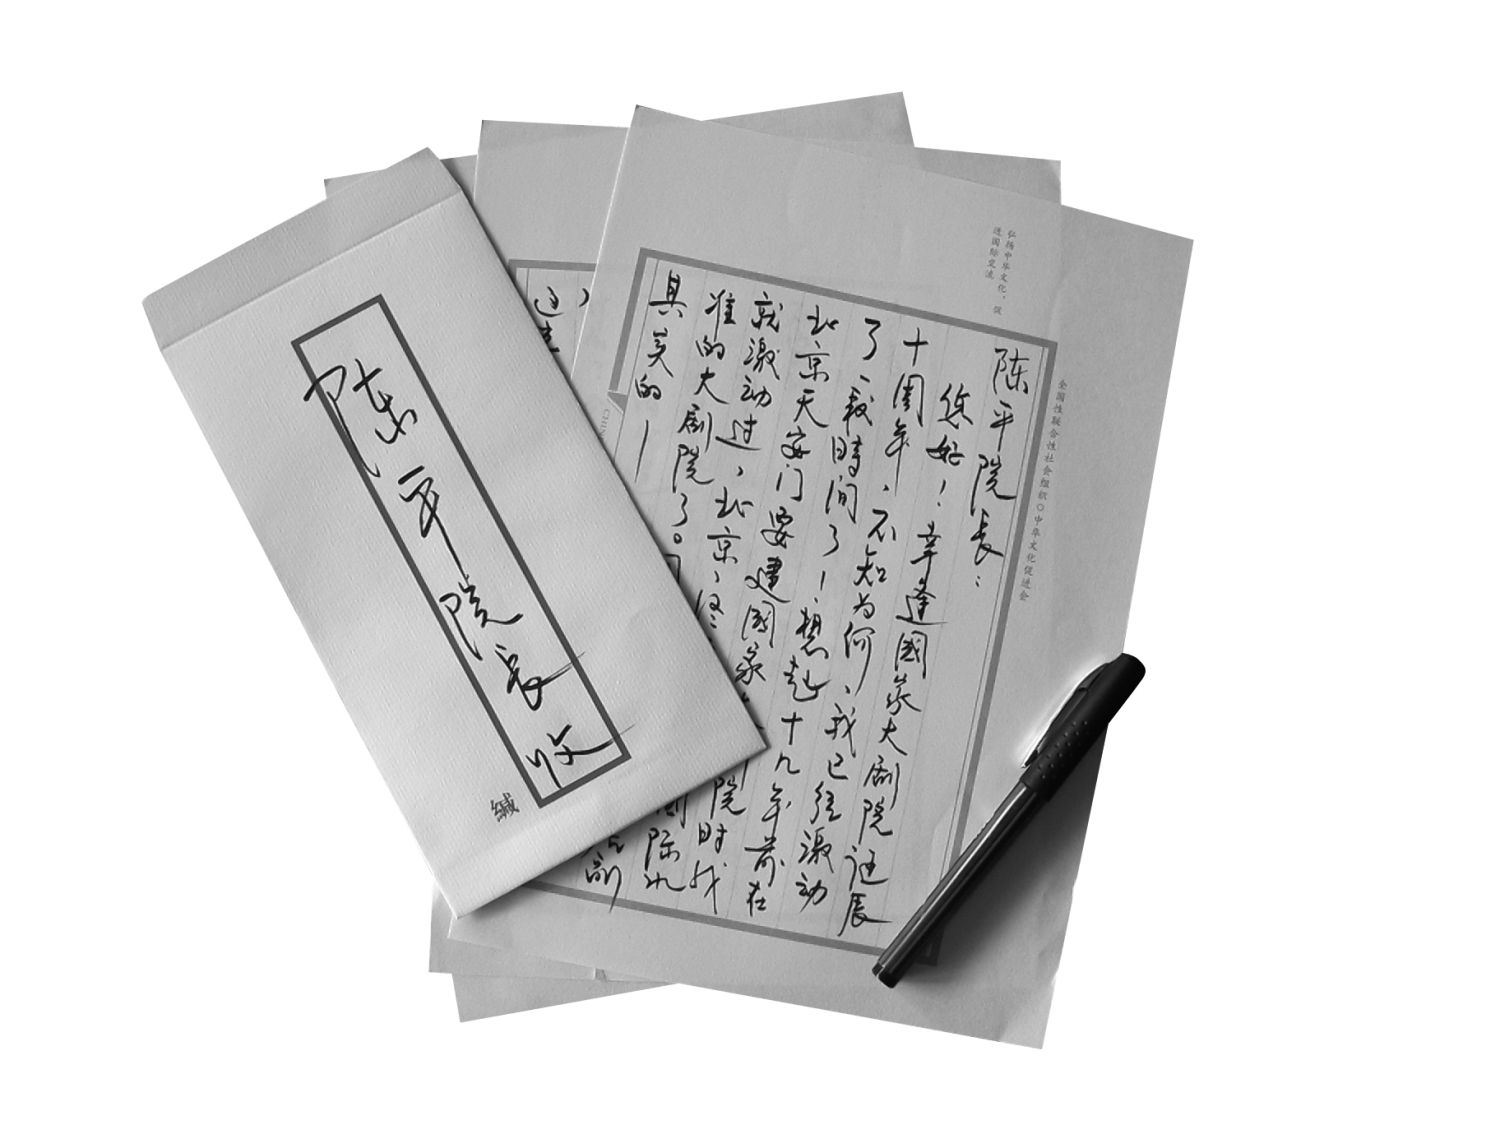 陈平院长收
缄
弘扬中华文化，促
进国际交流
全国性联合性社会组织○中华文化促进会
陈平院长：
您好！幸逢國家大剧院诞辰
十周年、不知为何、我已经激动
了、一段時间了！想起十九年前在
北京天安门要建國家
院时我
就激动过、北京、终
准的大剧院了。
国际水
具美的一
CHIN
这